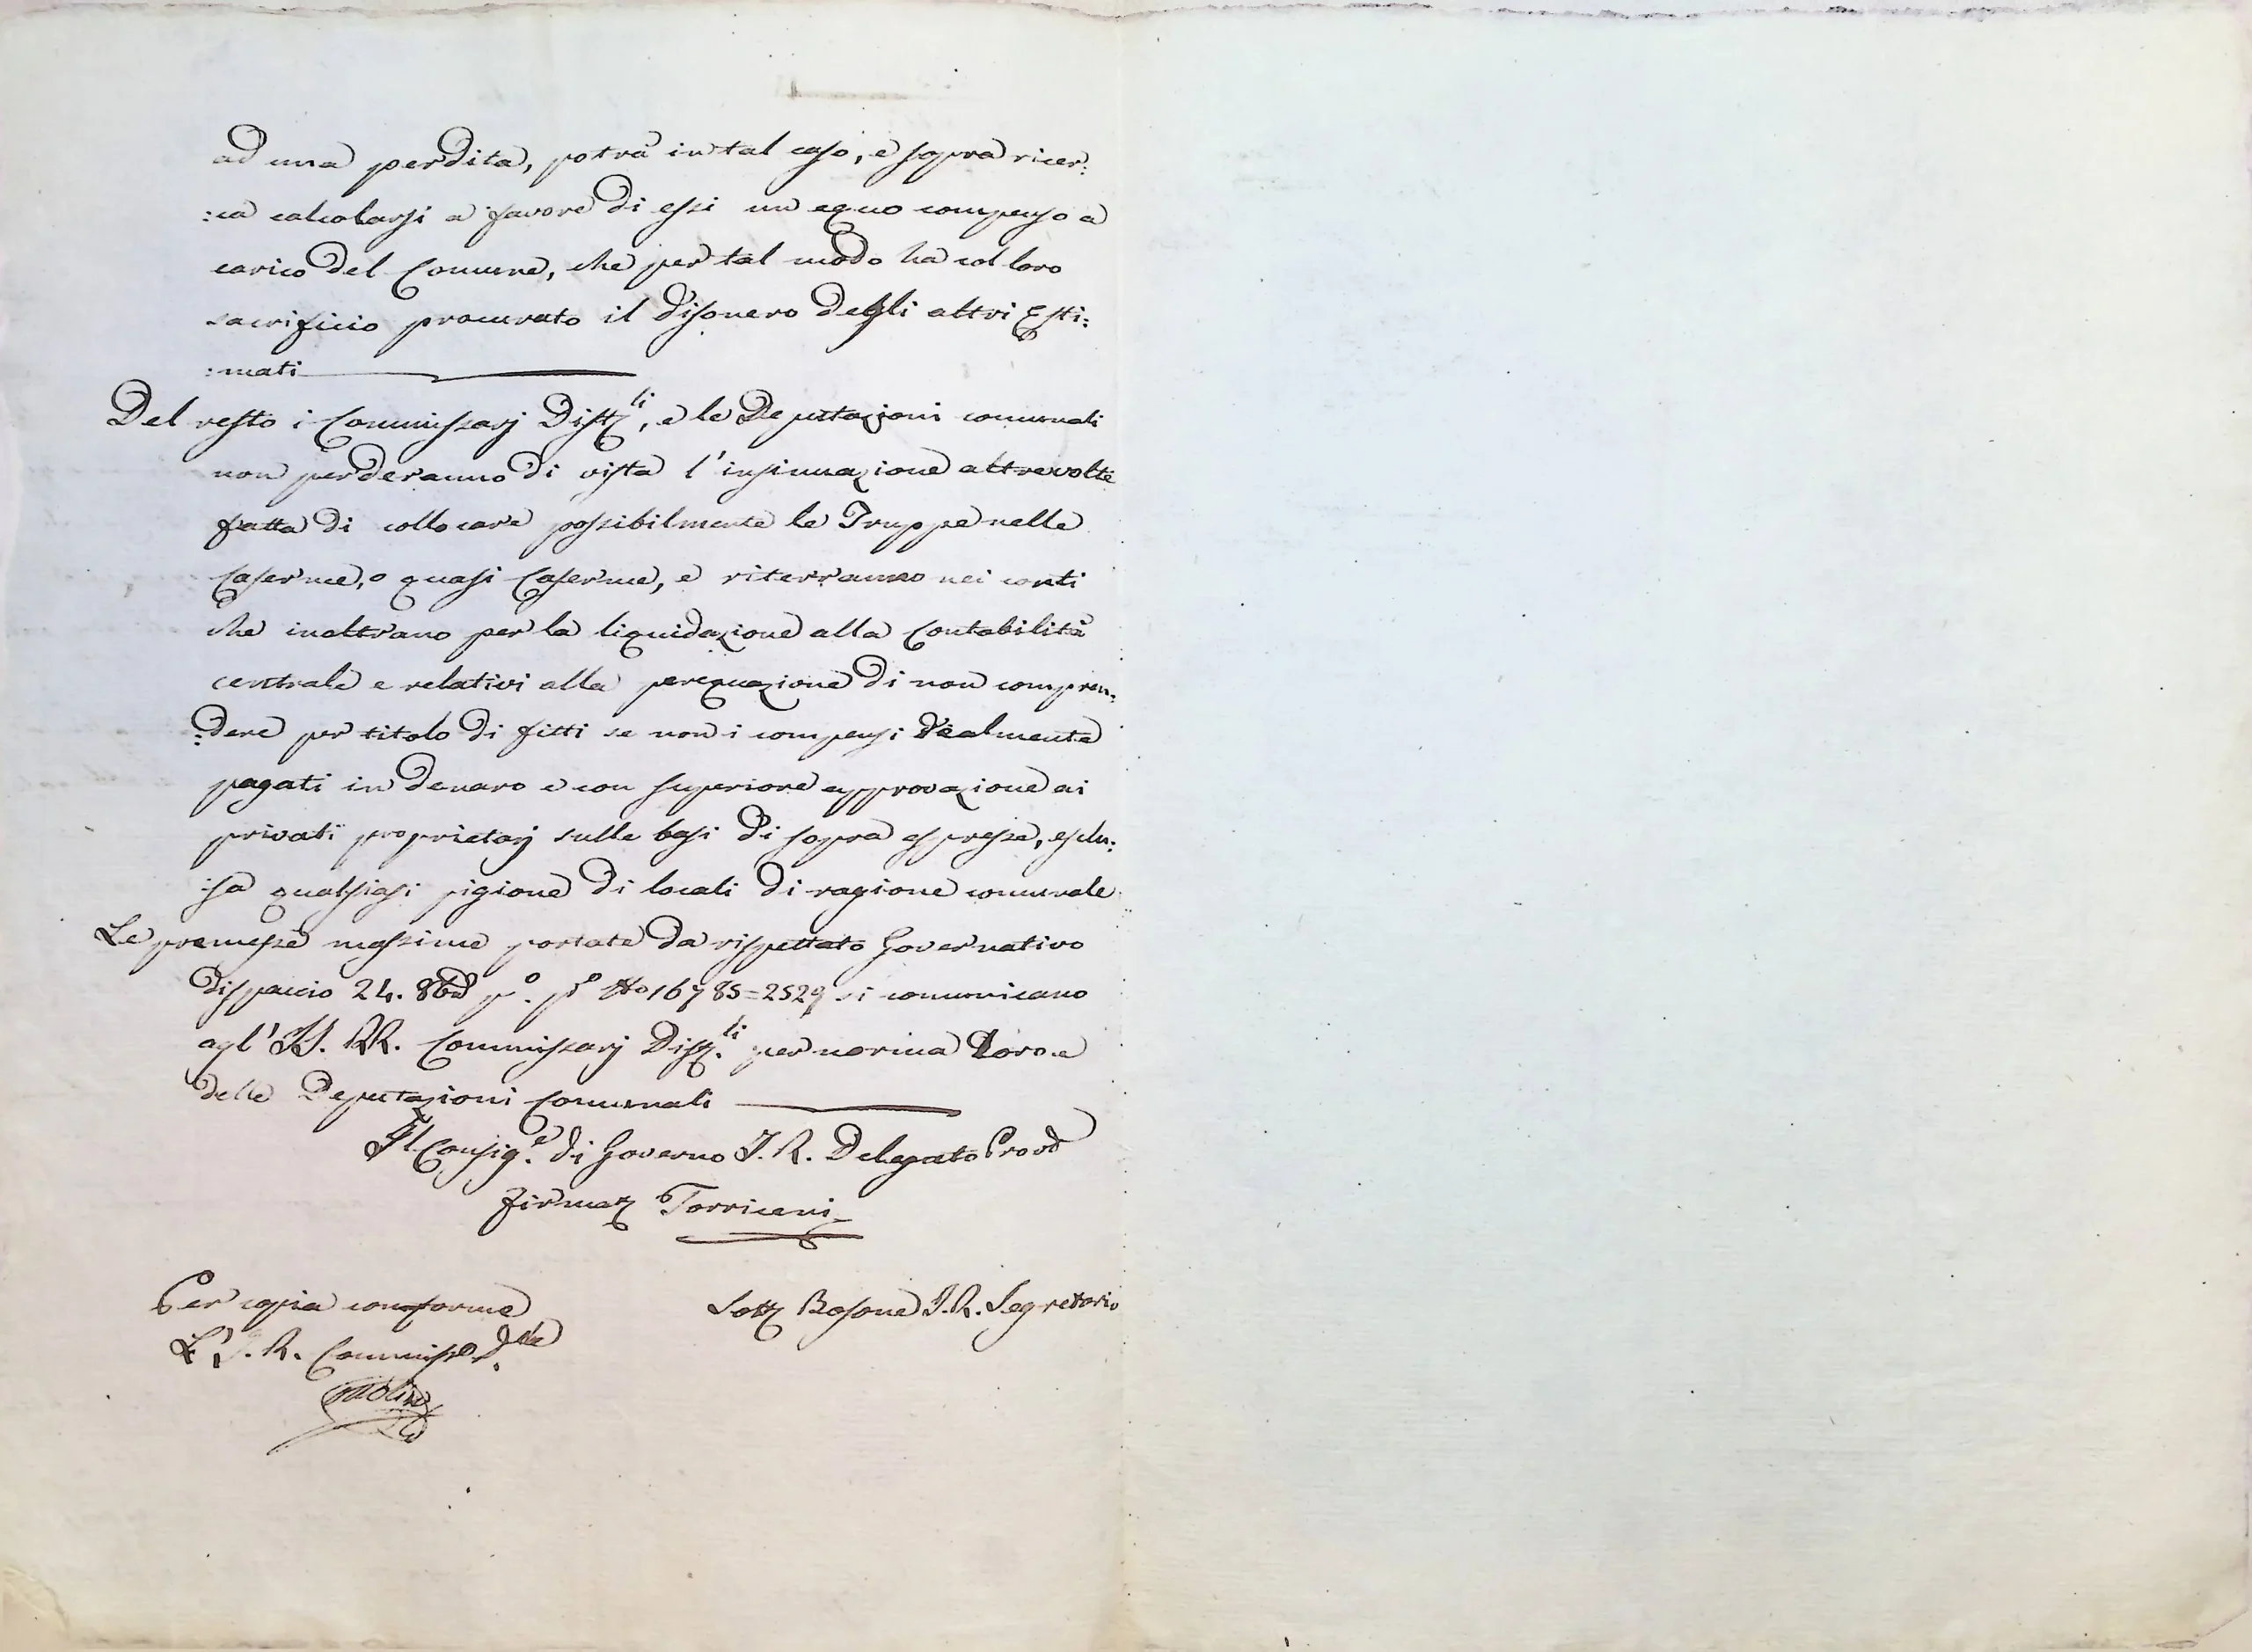 ad una perdita, potrà in tal caso, e sopra ricer:
:ca calcolarsi a favore di essi un equo compenso a
carico del Comune, che per tal modo ha col loro
sacrificio procurato il disonero degli altri Esti:
:mati
Del resto i Commissarj Distr.li, e le Deputazioni comunali
non perderanno di vista l'insinuazione altrevolte
fatta di collocare possibilmente le Truppe nelle
Caserme, o quasi Caserme, e riterranno nei conti
che inoltrano per la liquidazione alla Contabilità
centrale e relativi alla perequazione di non compren:
:dere per titolo di fitti se non i compensi realmente
pagati in denaro e con superiore approvazione ai
privati proprietarj sulle basi di sopra espresse, esclu:
:sa qualsiasi pigione di locali di ragione comunale
Le premesse massime portate da rispettato Governativo
dispaccio 24. 8bre p.o p.o No 16785=2529 si comunicano
agl'II. RR. Commissarj Distr.li per norma loro e
delle Deputazioni Comunali
Il Consig.e di Governo I. R. Delegato Prov.
Firmat Torriceni
Per copia conforme
Sott Bosone I. R. Segretario
L'I. R. Commiss D.le